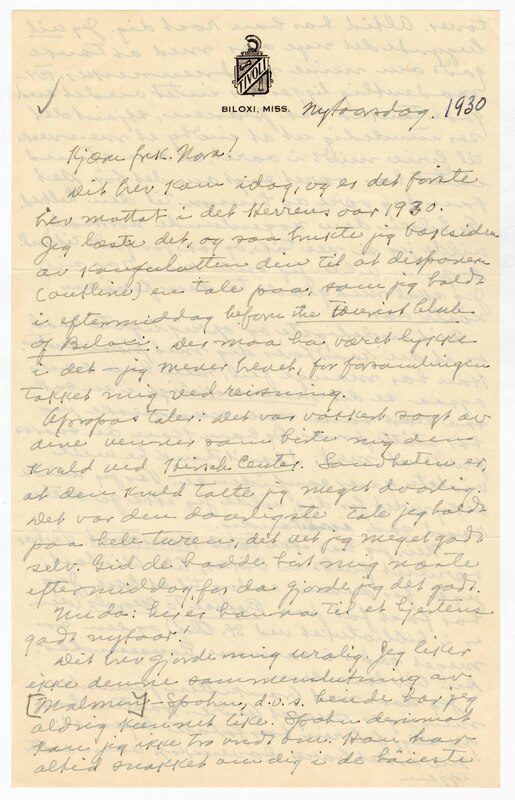 TIVOLI
BILOXI, MISS.
Nytaarsdag. 1930
Kjære frk. Nora!
Dit brev kom idag, og er det første
brev mottat i det Herrens aar 1930.
Jeg læste det, og saa brukte jeg baksiden
av konfulutten din til at disponere
(outline) en tale paa, som jeg holdt
i eftermiddag before the Tourist Club
of Biloxi. Der maa ha været lykke
i det – jeg mener brevet, for forsamlingen
takket mig ved reisning.
Apropos taler: Det var vakkert sagt av
dine venner som hørte mig den
kveld ved Hirsch Center. Sandheten er,
at den kveld talte jeg meget daarlig.
Det var den daarligste tale jeg holdt
paa hele turen, det vet jeg meget godt
selv. Gid de hadde hørt mig næste
eftermiddag, for da gjorde jeg det godt.
Nuda: her er banna til et hjertens
godt nytaar!
Dit brev gjorde mig urolig. Jeg liker
ikke denne sammenslutning av
[Malmin] – Spohn, d.v.s. hende har jeg
aldrig kunnet like. Spohn derimot
kan jeg ikke tro ondt om. Han har
altid snakket om dig i de høieste